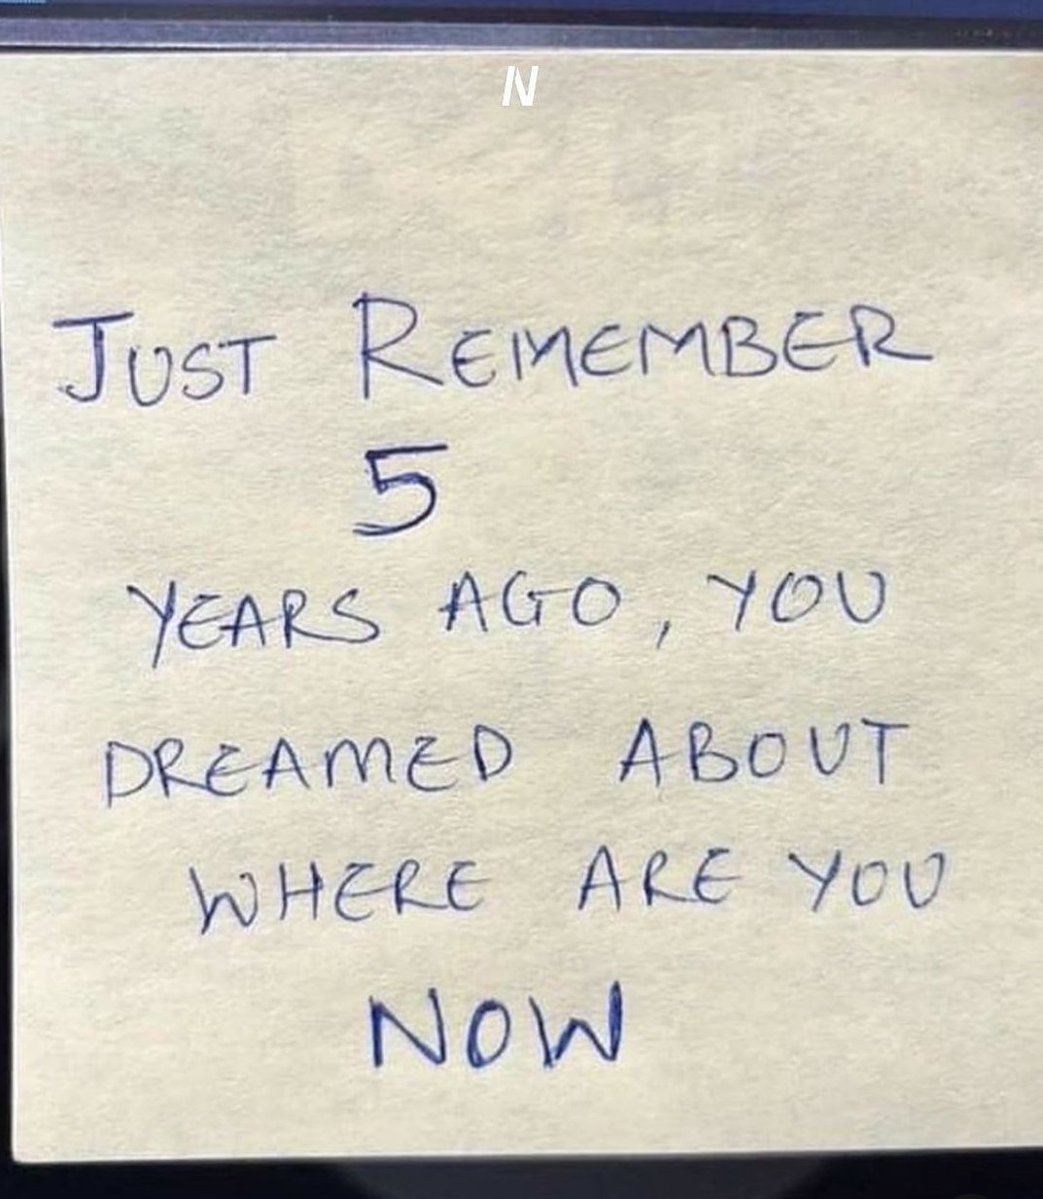 N
JUST REMEMBER
5
YEARS AGO, YOU
DREAMED ABOUT
WHERE ARE YOU
NOW